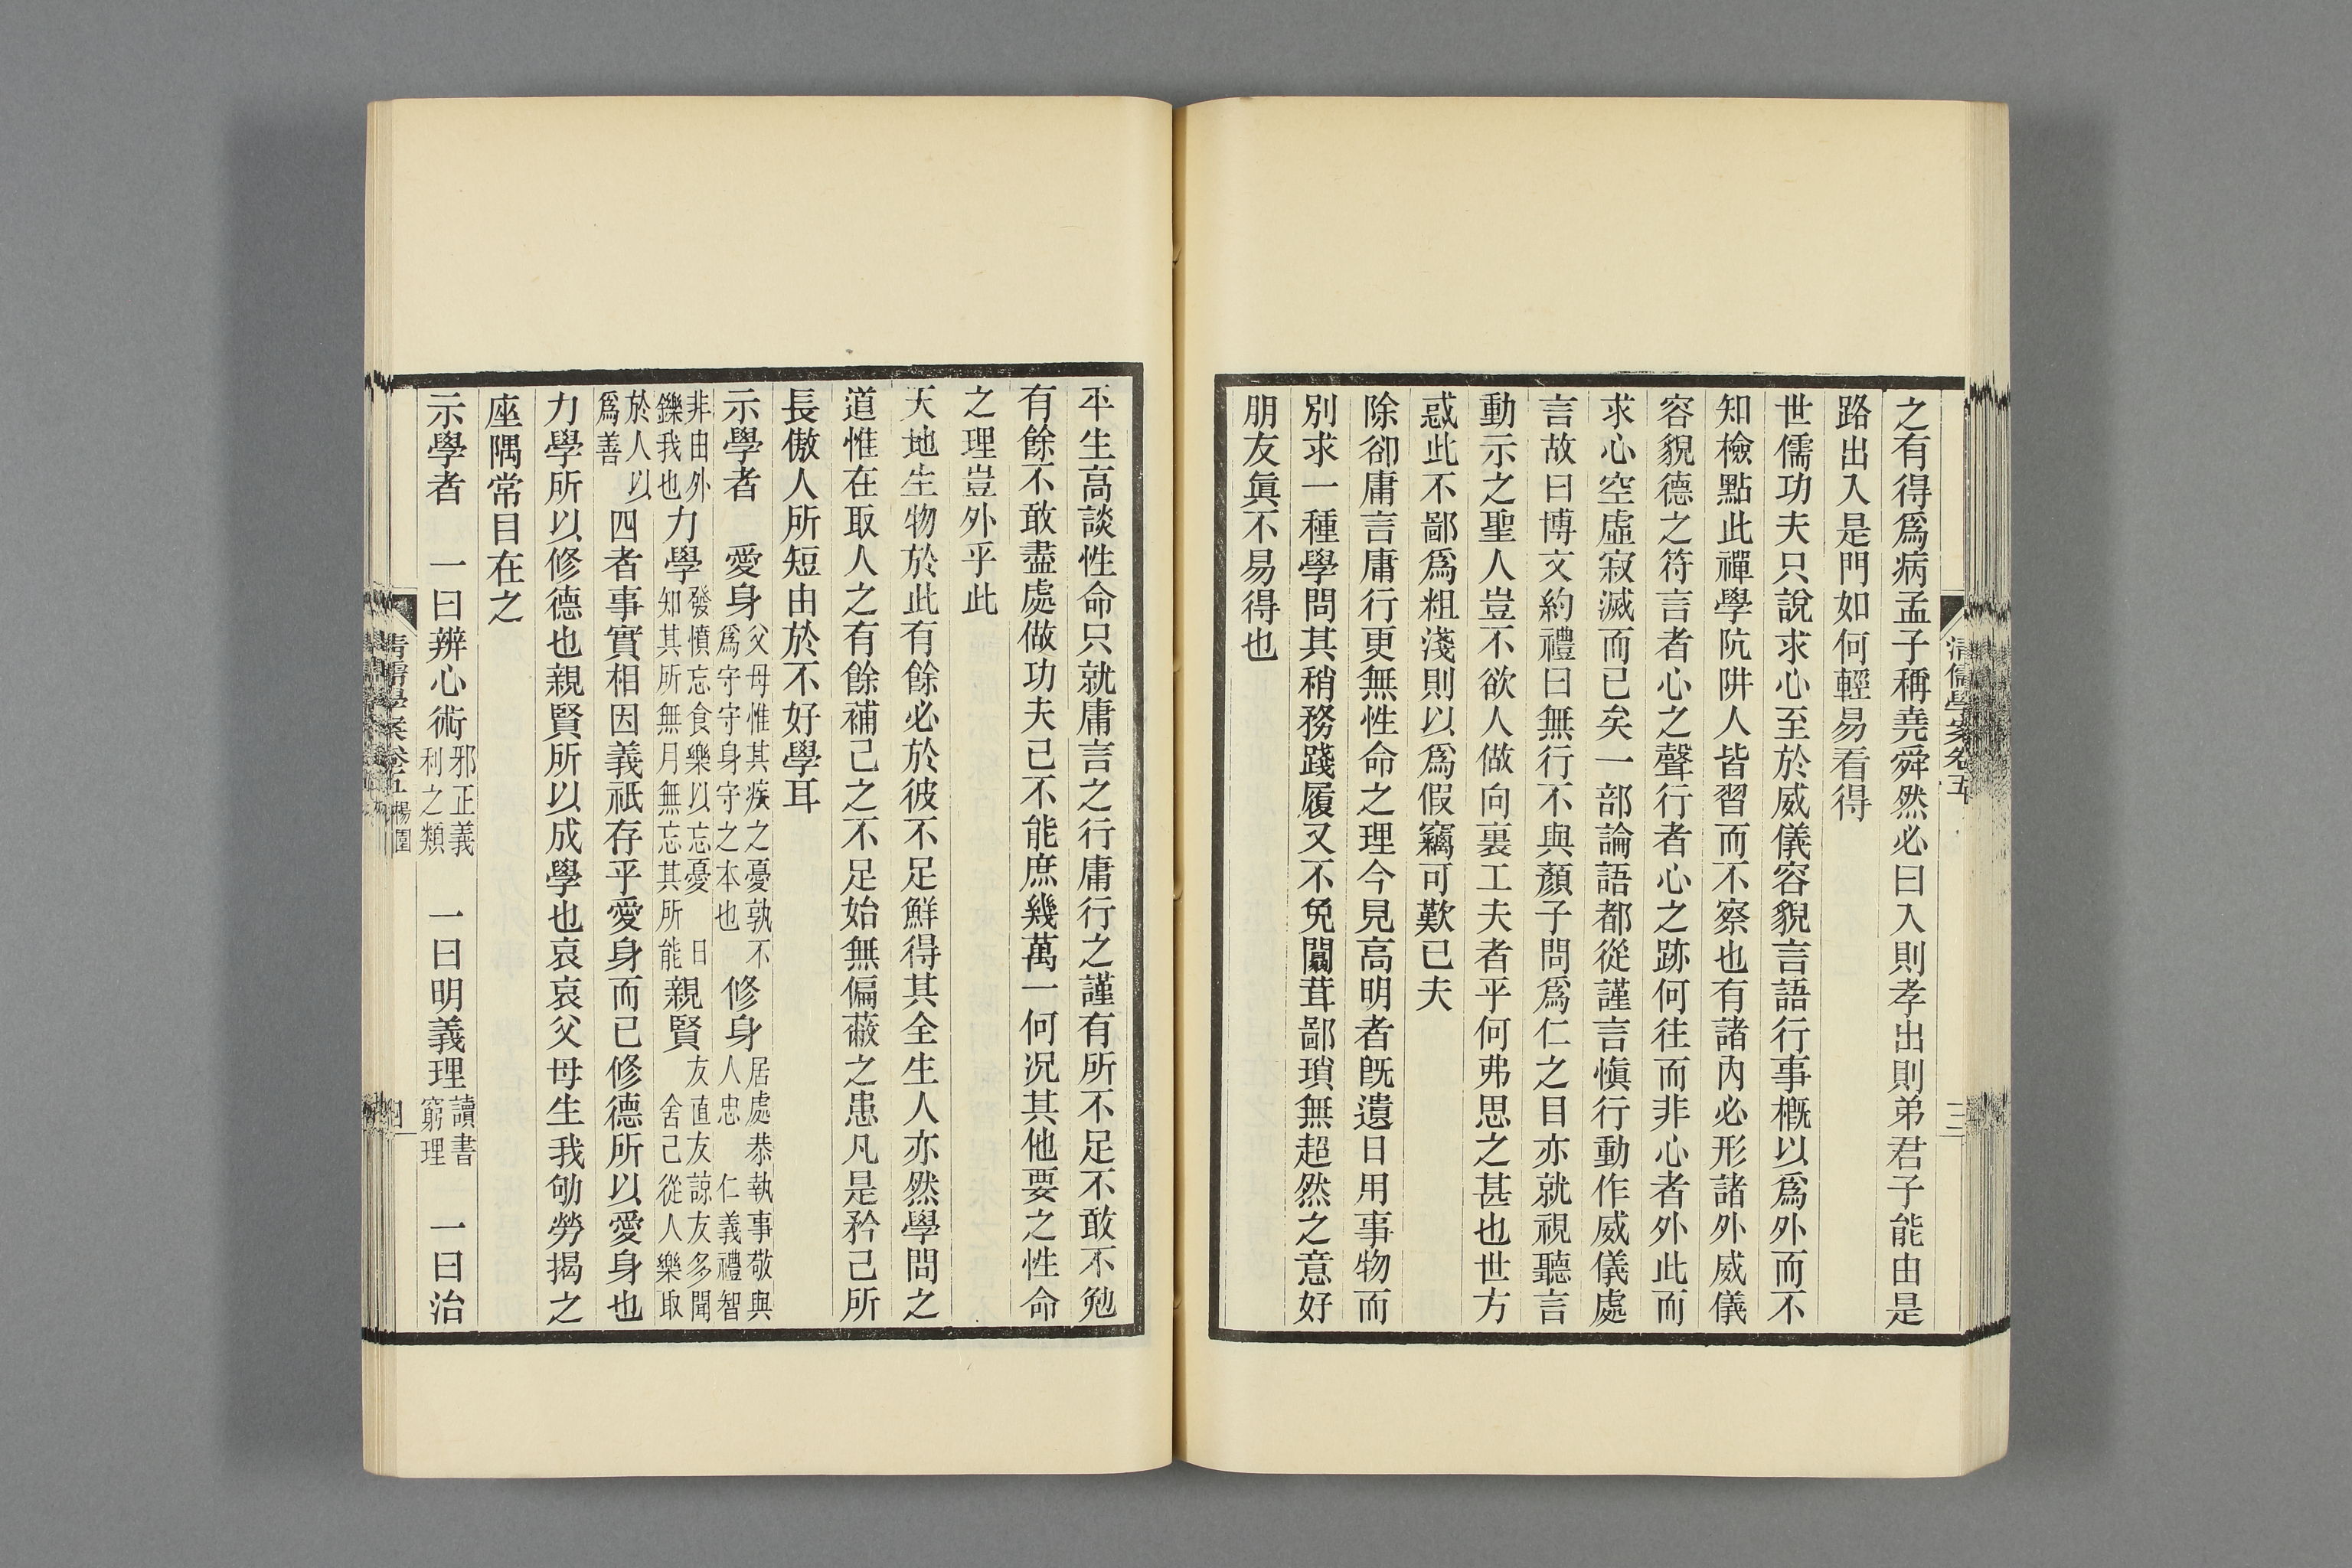 清儒學案卷五
三
之有得爲病孟子稱堯舜然必曰入則孝出則弟君子能由是
路出入是門如何輕易看得
世儒功夫只說求心至於威儀容貌言語行事槪以爲外而不
知檢點此禪學阬阱人皆習而不察也有諸內必形諸外威儀
容貌德之符言者心之聲行者心之跡何往而非心者外此而
求心空虛寂滅而已矣一部論語都從謹言愼行動作威儀處
言故曰博文約禮曰無行不與顏子問爲仁之目亦就視聽言
動示之聖人豈不欲人做向裏工夫者乎何弗思之甚也世方
惑此不鄙爲粗淺則以爲假竊可歎已夫
除卻庸言庸行更無性命之理今見高明者旣遺日用事物而
別求一種學問其稍務踐履又不免闒茸鄙瑣無超然之意好
朋友眞不易得也
平生高談性命只就庸言之行庸行之謹有所不足不敢不勉
有餘不敢盡處做功夫已不能庶幾萬一何況其他要之性命
之理豈外乎此
天地生物於此有餘必於彼不足鮮得其全生人亦然學問之
道惟在取人之有餘補己之不足始無偏蔽之患凡是矜己所
長傲人所短由於不好學耳
示學者 愛身父母惟其疾之憂孰不爲守守身守之本也 修身居處恭執事敬與人忠 仁義禮智
非由外鑠我也力學發憤忘食樂以忘憂 日知其所無月無忘其所能親賢友直友諒友多聞 舍己從人樂取
於人以爲善 四者事實相因義祇存乎愛身而已修德所以愛身也
力學所以修德也親賢所以成學也哀哀父母生我劬勞揭之
座隅常目在之
示學者 一曰辨心術邪正義利之類 一曰明義理讀書窮理 一曰治
清儒學案卷五 楊園
四